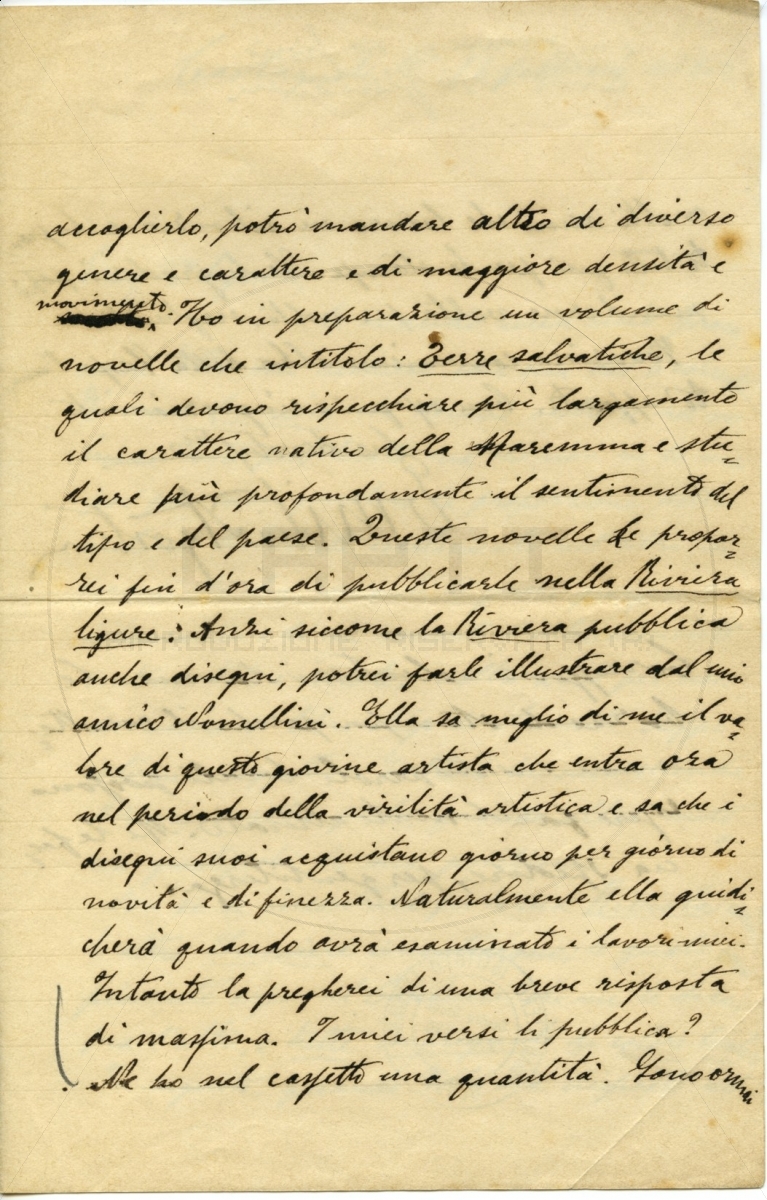 accoglierlo, potrò mandare altro di diverso
genere e carattere e di maggiore densità e
movimento. Ho in preparazione un volume di
novelle che intitolo: Terre salvatiche, le
quali devono rispecchiare più largamente
il carattere nativo della Maremma e stu=
diare più profondamente il sentimento del
tipo e del paese. Queste novelle le propor=
rei fin d'ora di pubblicarle nella Riviera
ligure: Anzi siccome la Riviera pubblica
anche disegni, potrei farle illustrare dal mio
amico Nomellini. Ella sa meglio di me il va=
lore di questo giovine artista che entra ora
nel periodo della virilità artistica e sa che i
disegni suoi acquistano giorno per giorno di
novità e di finezza. Naturalmente ella guidi=
cherà quando avrà esaminato i lavori miei.
Intanto la pregherei di una breve risposta
di massima. I miei versi li pubblica?
Ne ho nel cassetto una quantità. Sono ormai